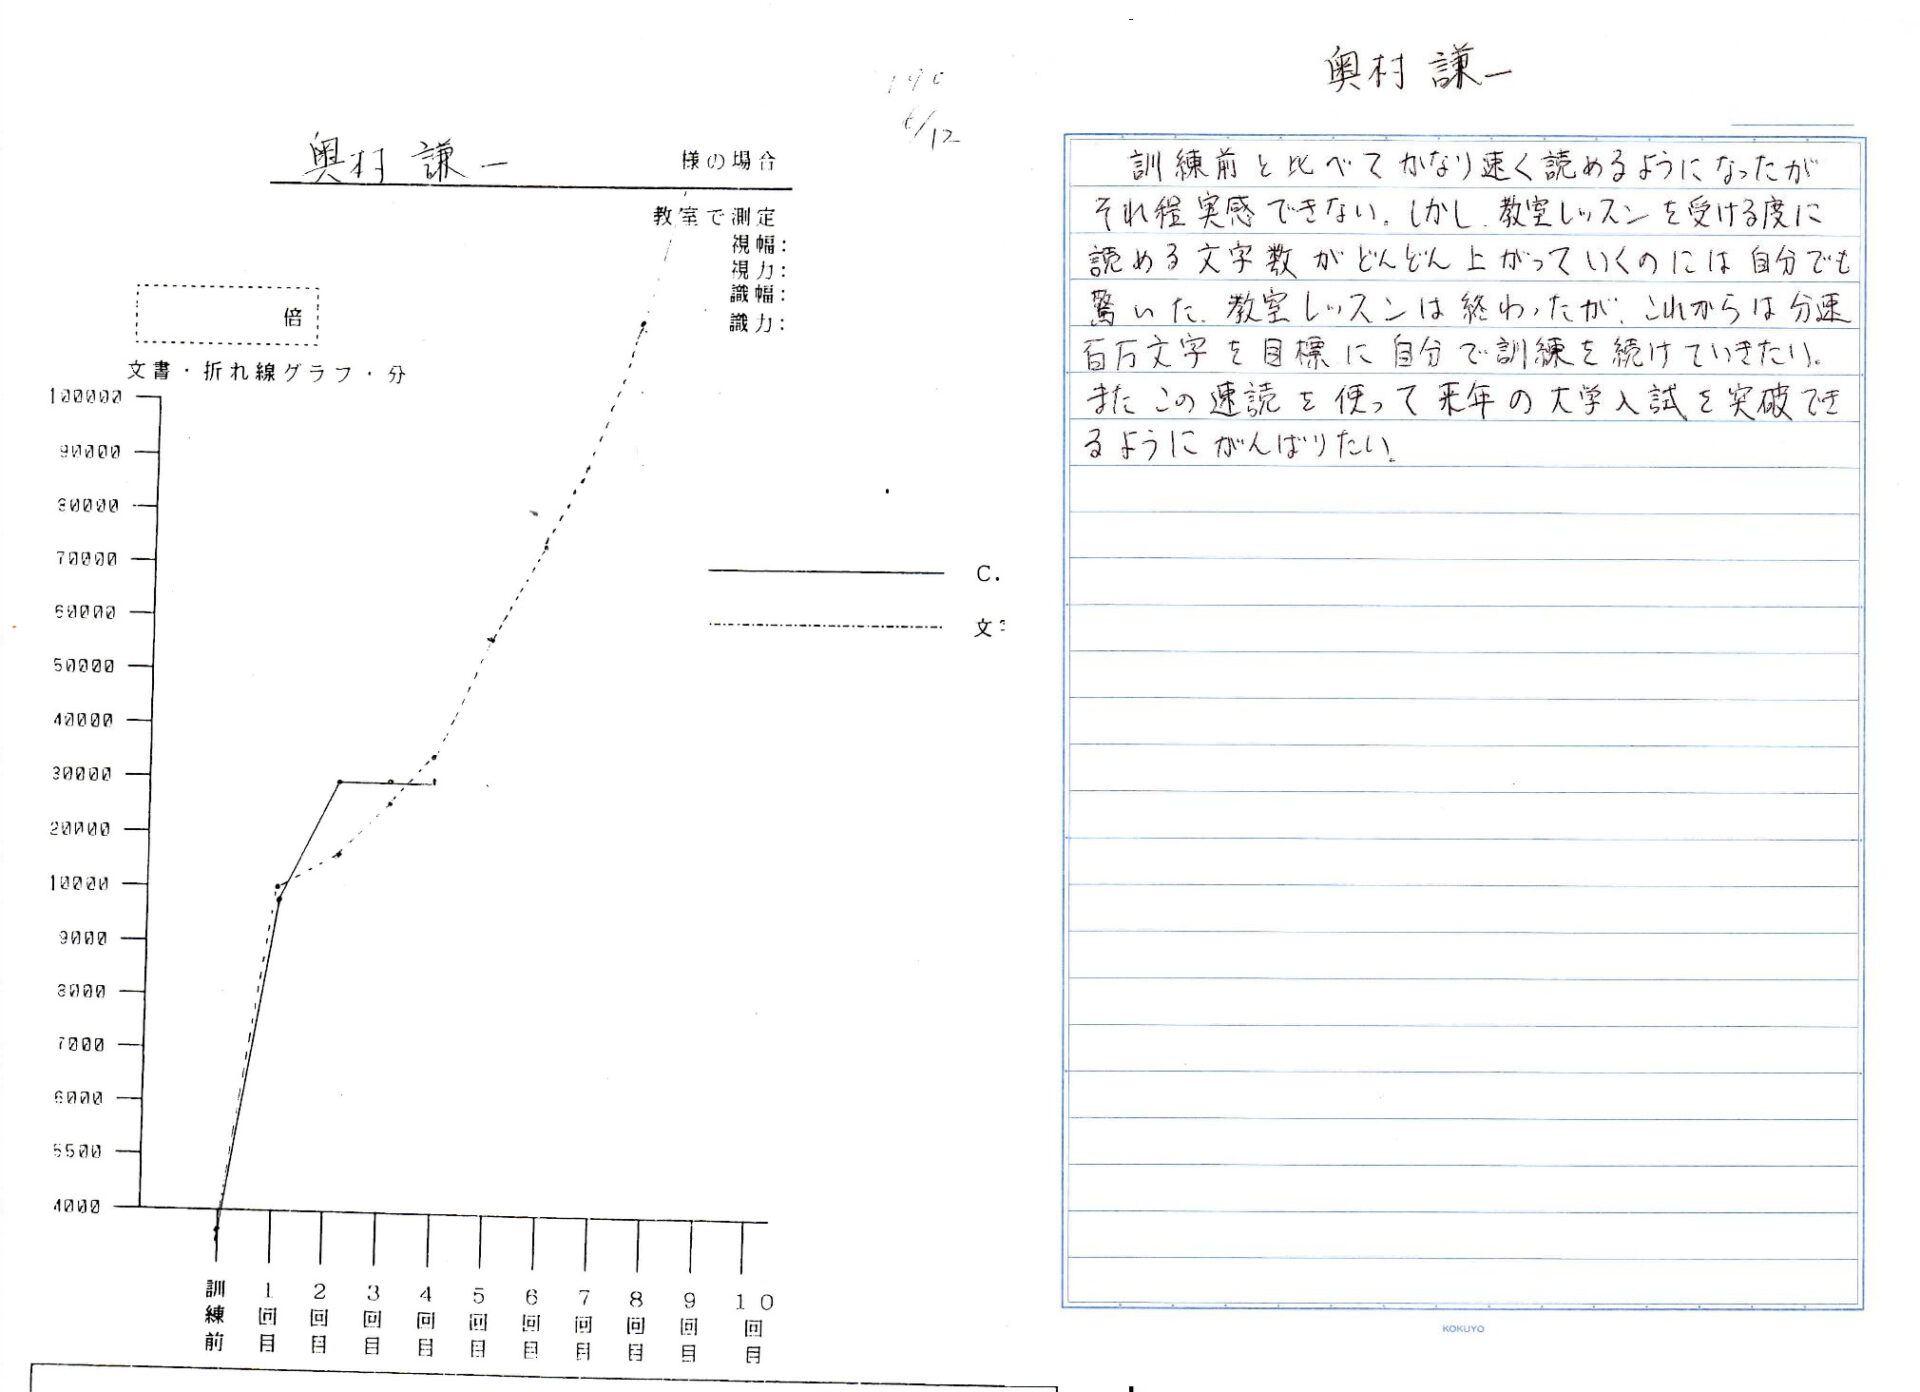 奥村 謙一 様の場合
6/12
教室で測定
視幅:
視力:
識幅:
識力:
倍
文書・折れ線グラフ・分
100000
90000
80000
70000
60000
50000
40000
30000
20000
10000
9000
8000
7000
6000
5500
4000
C.
文
訓練前
1回目
2回目
3回目
4回目
5回目
6回目
7回目
8回目
9回目
10回目
奥村 謙一
訓練前と比べてかなり速く読めるようになったが
それ程実感できない。しかし、教室レッスンを受ける度に
読める文字数がどんどん上がっていくのには自分でも
驚いた。教室レッスンは終わったが、これからは分速
百万文字を目標に自分で訓練を続けていきたい。
またこの速読を使って来年の大学入試を突破でき
るようにがんばりたい。
KOKUYO